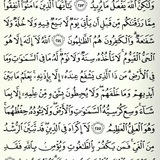 وَلَٰكِنَّ ٱللَّهَ يَفْعَلُ مَا يُرِيدُ ٢٥٣ يَٰٓأَيُّهَا ٱلَّذِينَ ءَامَنُوٓا۟ أَنفِقُوا۟
مِمَّا رَزَقْنَٰكُم مِّن قَبْلِ أَن يَأْتِىَ يَوْمٌ لَّا بَيْعٌ فِيهِ وَلَا خُلَّةٌ وَلَا
شَفَٰعَةٌ وَٱلْكَٰفِرُونَ هُمُ ٱلظَّٰلِمُونَ ٢٥٤ ٱللَّهُ لَآ إِلَٰهَ إِلَّا هُوَ
ٱلْحَىُّ ٱلْقَيُّومُ لَا تَأْخُذُهُۥ سِنَةٌ وَلَا نَوْمٌ لَّهُۥ مَا فِى ٱلسَّمَٰوَٰتِ وَمَا
فِى ٱلْأَرْضِ مَن ذَا ٱلَّذِى يَشْفَعُ عِندَهُۥٓ إِلَّا بِإِذْنِهِۦ يَعْلَمُ مَا بَيْنَ
أَيْدِيهِمْ وَمَا خَلْفَهُمْ وَلَا يُحِيطُونَ بِشَىْءٍ مِّنْ عِلْمِهِۦٓ إِلَّا بِمَا
شَآءَ وَسِعَ كُرْسِيُّهُ ٱلسَّمَٰوَٰتِ وَٱلْأَرْضَ وَلَا يَـُٔودُهُۥ حِفْظُهُمَا
وَهُوَ ٱلْعَلِىُّ ٱلْعَظِيمُ ٢٥٥ لَآ إِكْرَاهَ فِى ٱلدِّينِ قَد تَّبَيَّنَ ٱلرُّشْدُ
مِنَ ٱلْغَىِّ فَمَن يَكْفُرْ بِٱلطَّٰغُوتِ وَيُؤْمِنۢ بِٱللَّهِ فَقَدِ